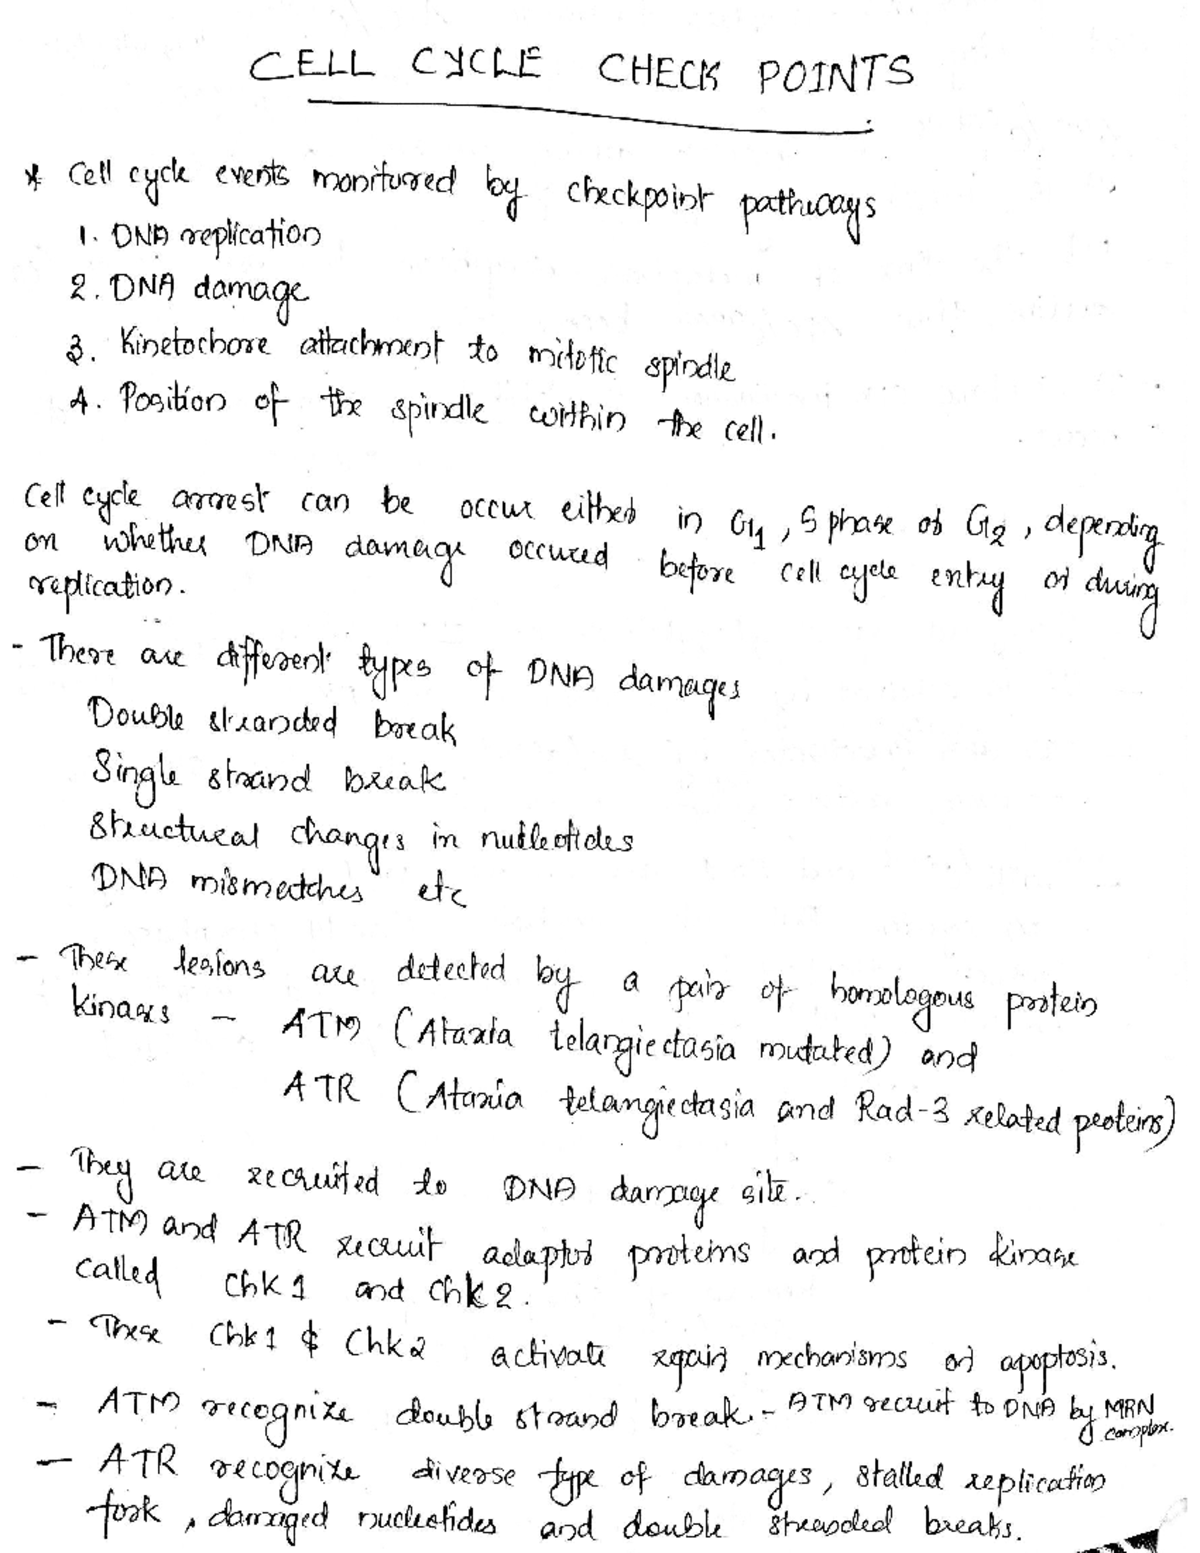 CELL CYCLE CHECK POINTS
* Cell cycle events monitured by checkpoint pathways
1. DNA replication
2. DNA damage
3. Kinetochore attachment to mitotic spindle
4. Position of the spindle within the cell.
Cell cycle arrest can be occur either in G1, S phase or G2, depending
on whether DNA damage occured before cell cycle entry or during
replication.
- There are different types of DNA damages
Double stranded break
Single strand break
Structural changes in nucleotides
DNA mismatches etc
- These lesions are detected by a pair of homologous protein
kinases - ATM (Ataxia telangiectasia mutated) and
ATR (Ataxia telangiectasia and Rad-3 related proteins)
- They are recruited to DNA damage site.
- ATM and ATR recruit adaptor proteins and protein kinase
called Chk1 and Chk2.
- These Chk1 & Chk2 activate repair mechanisms or apoptosis.
- ATM recognize double strand break. - ATM recruit to DNA by MRN
complex.
- ATR recognize diverse type of damages, stalled replication
fork, damaged nucleotides and double stranded breaks.